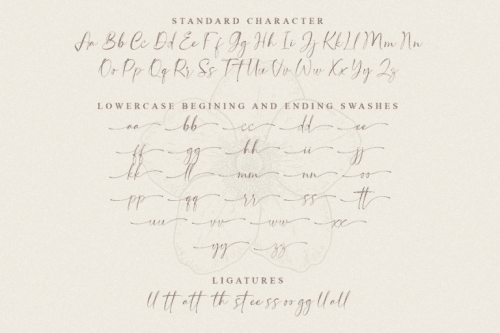 STANDARD CHARACTER
Aa Bb Cc Dd Ee Ff Gg Hh Ii Jj Kk Ll Mm Nn
Oo Pp Qq Rr Ss Tt Uu Vv Ww Xx Yy Zz
LOWERCASE BEGINING AND ENDING SWASHES
aa bb cc dd ee
ff gg hh ii jj
kk ll mm nn oo
pp qq rr ss tt
uu vv ww xx
yy zz
LIGATURES
ll tt att th st ee ss oo gg ll all